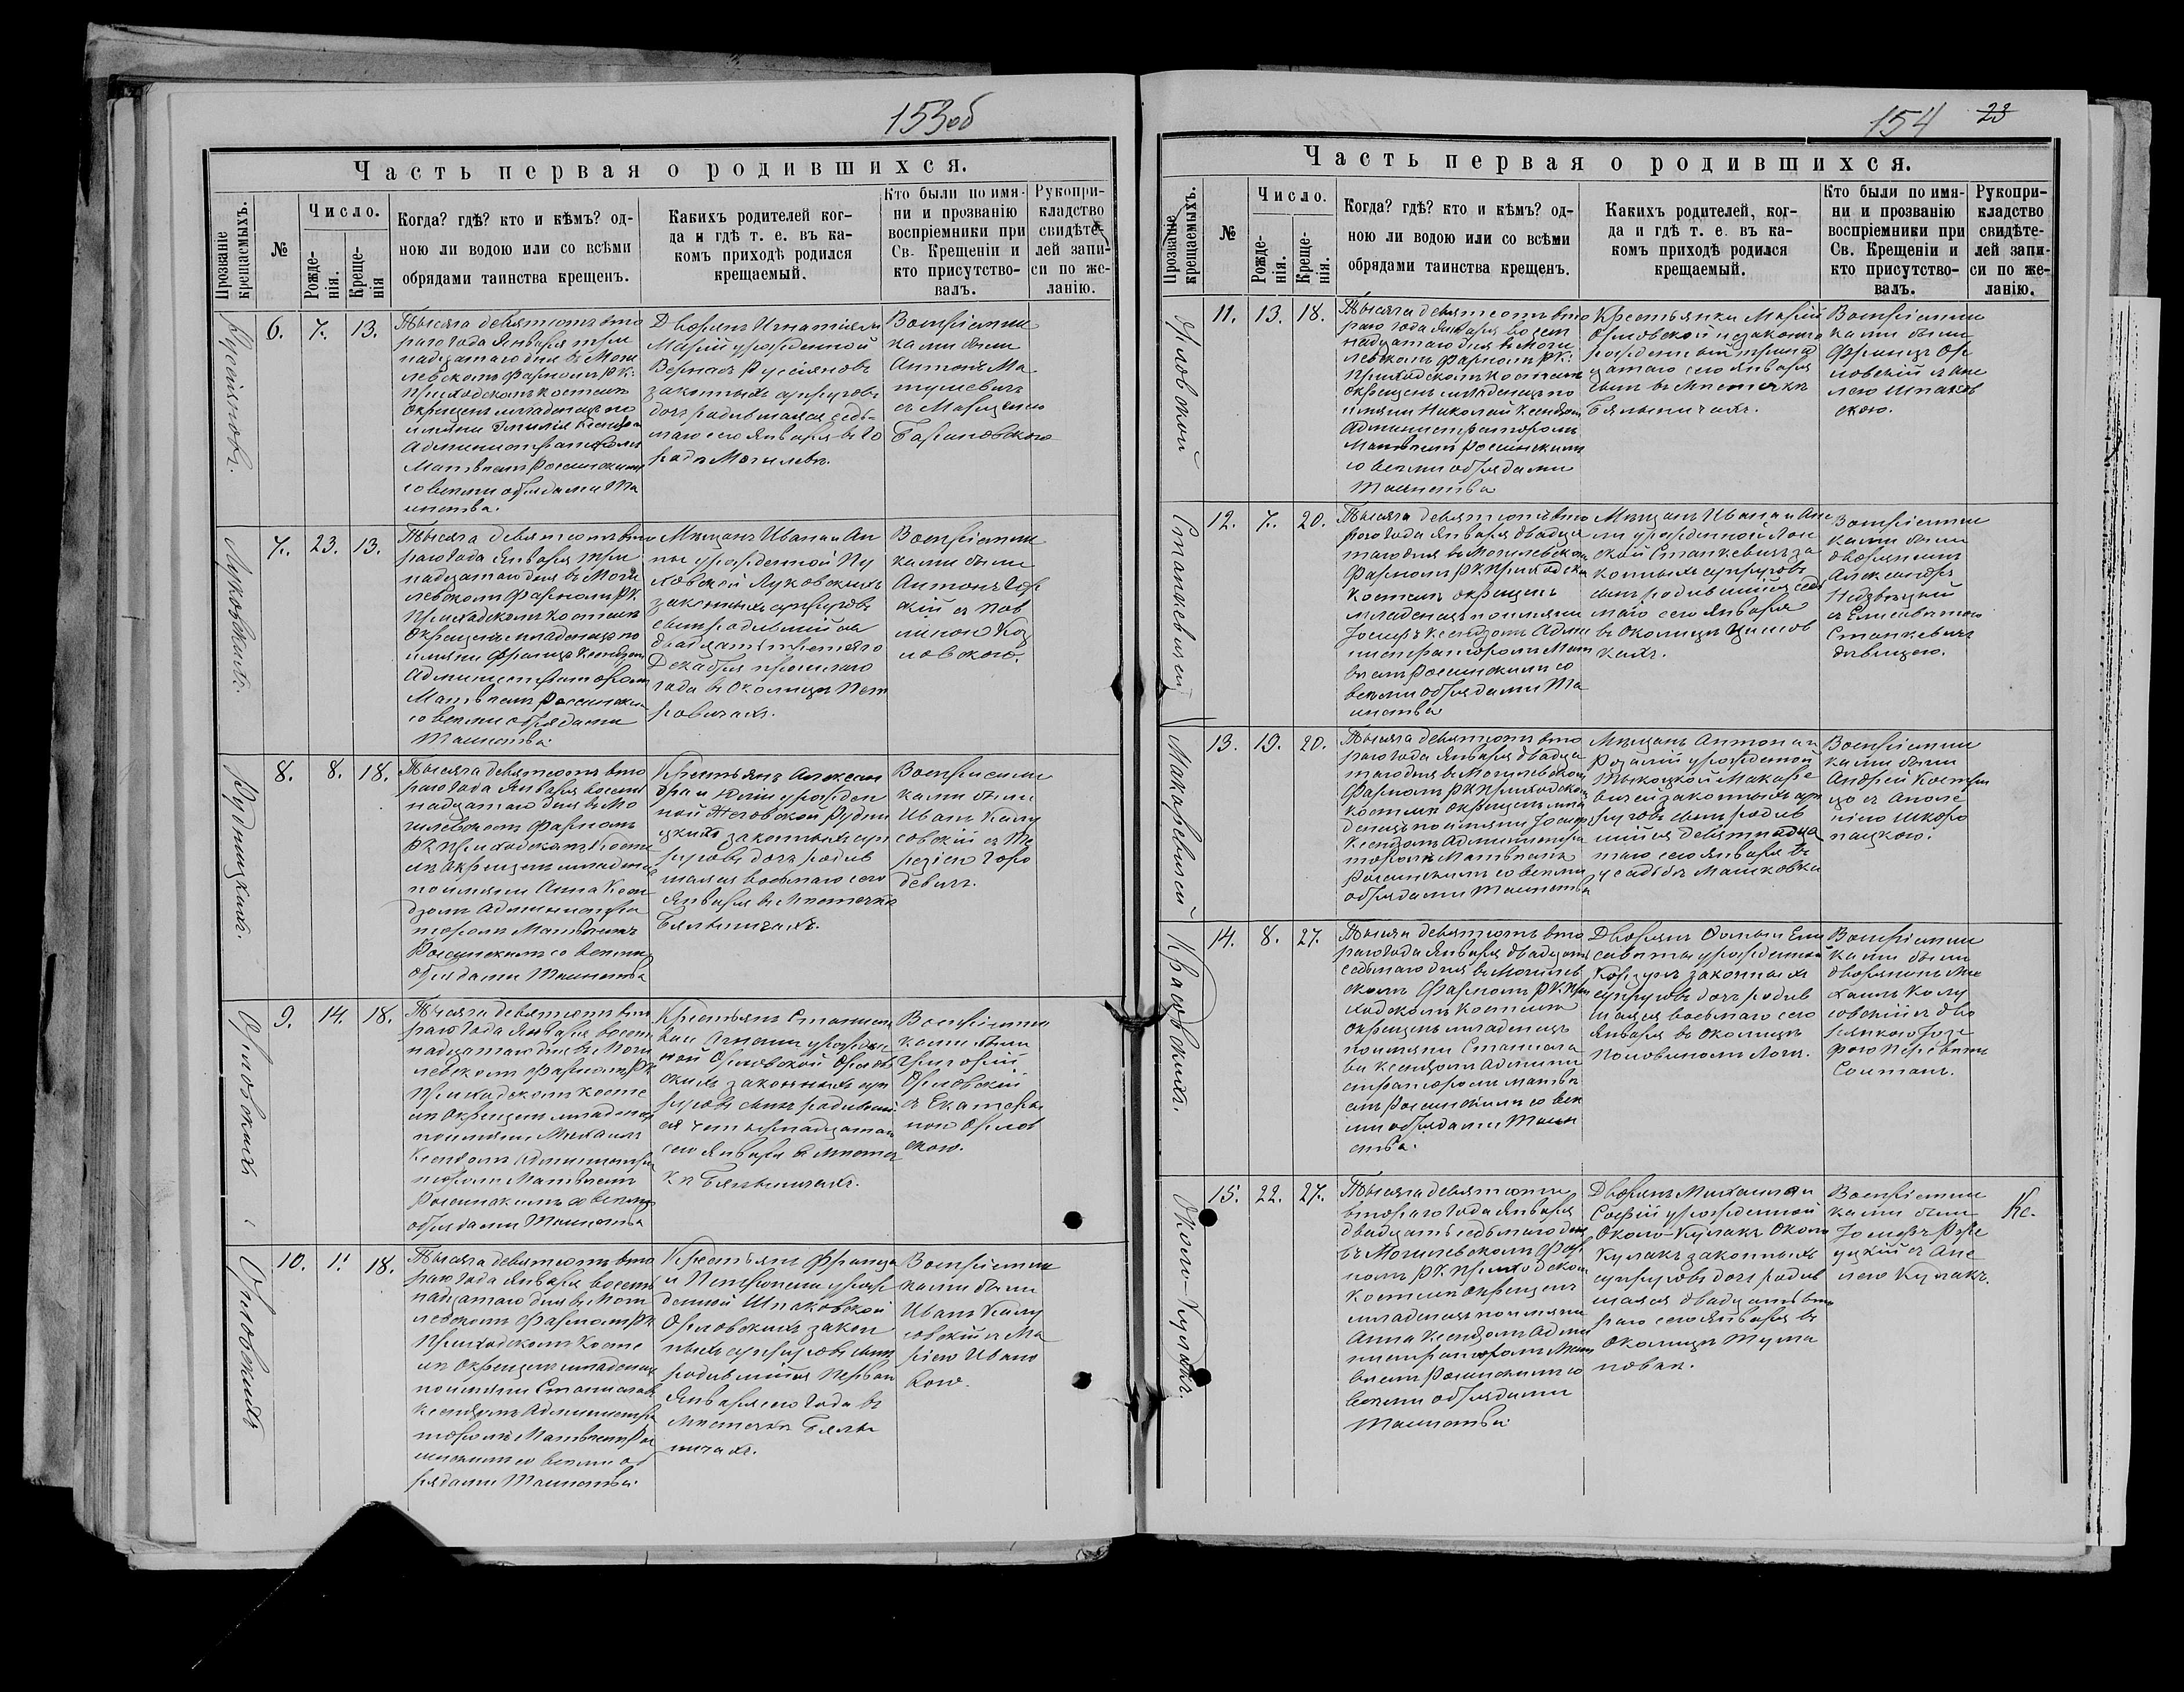 153об
Часть первая о родившихся.
Прозваніе крещаемыхъ.
№
Число.
Рожде-
нія.
Креще-
нія
Когда? гдѣ? кто и кѣмъ? од-
ною ли водою или со всѣми
обрядами таинства крещенъ.
Какихъ родителей ког-
да и гдѣ т. е. въ ка-
комъ приходѣ родился
крещаемый.
Кто были по имя-
ни и прозванію
воспріемники при
Св. Крещеніи и
кто присутство-
валъ.
Рукопри-
кладство
свидѣте-
лей запи-
си по же-
ланію.
6. 7. 13.
Тысяча девятсотъ вто
раго года Января три
надцатаго дня въ Моги
левскомъ Фарномъ РК.
Приходскомъ костелѣ
Окрещенъ младенецъ по
имяни Эмилія Ксендзомъ
Администраторомъ
со всѣми обрядами Та
инства.
Дворянъ Игнатія и
Маріи урожденной
законныхъ супруговъ
дочь родившаяся седь-
маго сего Января въ Го
родѣ Могилевѣ.
Воспріемни
ками были
Антонъ Ма
тушевичъ
съ
Барановскою
Луковскихъ.
7. 23. 13.
Тысяча девятсотъ вто
раго Года Января три
надцатаго дня въ Моги
левскомъ Фарномъ РК
Приходскомъ костелѣ
Окрещенъ младенецъ по
имяни Францъ Ксендзомъ
Администраторомъ
со всѣми обрядами
Таинства.
Мѣщанъ Ивана и Ан
ны урожденной Пу
ховской Луковскихъ
законныхъ супруговъ
сынъ родившійся
двадцать третьяго
Декабря прошлаго
года въ Околицѣ Пет
ровичахъ.
Воспріемни
ками были
Антонъ
скій съ Пав
линою Коз
ловскою.
Рудницкихъ.
8. 8. 18.
Тысяча девятсотъ вто
раго года Января восем
надцатаго дня въ Мо
гилевскомъ Фарномъ
РК Приходскомъ Косте
лѣ Окрещенъ младенецъ
по имяни Анна Ксен
дзомъ Администра
торомъ
со всѣми
обрядами Таинства
Крестьянъ Алексан
дра и Юліи урожден
ной Рудни
цкихъ законныхъ суп
руговъ дочь родив
шаяся восьмаго сего
Января въ Мѣстечкѣ
Бялыничахъ.
Воспріемни
ками были
Иванъ Калу
совскій съ Те
резіею Горо
девичъ.
Орловскихъ
9. 14. 18.
Тысяча девятсотъ вто
раго Года Января восем
надцатаго дня въ Моги
левскомъ Фарномъ РК
Приходскомъ Косте
лѣ Окрещенъ младенецъ
по имяни Михаилъ
Ксендзомъ Администра
торомъ
со всѣми
обрядами Таинства
Крестьянъ Станисла
ва и Агнеты урожден
ной Орловской Орлов
скихъ законныхъ суп
руговъ сынъ родившій
ся четырнадцатаго
сего Января въ Мѣстеч
кѣ Бялыничахъ.
Воспріемни
ками были
Григорій
Орловскій
съ Екатери
ною Орлов
скою.
Орловскихъ
10. 1. 18.
Тысяча девятсотъ вто
раго Года Января восем
надцатаго дня въ Моги
левскомъ Фарномъ РК
Приходскомъ Косте
лѣ Окрещенъ младенецъ
по имяни Станиславъ
Ксендзомъ Администра
торомъ
со всѣми об
рядами Таинства.
Крестьянъ Франца
и Петронели урож
денной Шпаковской
Орловскихъ закон
ныхъ супруговъ сынъ
родившійся перваго
Января сего Года въ
Мѣстечкѣ Бялы
ничахъ.
Воспріемни
ками были
Иванъ Калу
совскій съ Ма
ріею Ивано
вою.
154 23
Часть первая о родившихся.
Прозваніе крещаемыхъ.
№
Число.
Рожде-
нія.
Креще-
нія.
Когда? гдѣ? кто и кѣмъ? од-
ною ли водою или со всѣми
обрядами таинства крещенъ.
Какихъ родителей, ког-
да и гдѣ т. е. въ ка-
комъ приходѣ родился
крещаемый.
Кто были по имя-
ни и прозванію
воспріемники при
Св. Крещеніи и
кто присутство-
валъ.
Рукопри-
кладство
свидѣте-
лей запи-
си по же-
ланію.
Орловской
11. 13. 18.
Тысяча девятсотъ вто
раго года Января восем
надцатаго дня въ Моги
левскомъ Фарномъ РК.
Приходскомъ Костелѣ
окрещенъ младенецъ по
имяни Николай Ксендзомъ
Администраторомъ
со всѣми обрядами
Таинства
Крестьянки Маріи
Орловской незаконно
рожденный тринад
цатаго сего Января
сынъ въ Мѣстечкѣ
Бялыничахъ.
Воспріемни
ками были
Францъ Ор
ловскій съ Ане
лею Шпаков
скою.
Станкевичей
12. 7. 20.
Тысяча девятсотъ вто
раго года Января двадца
таго дня въ Могилевскомъ
Фарномъ РК Приходском
Костелѣ окрещенъ
младенецъ по имяни
Іосифъ Ксендзомъ Адми
нистраторомъ
со
всѣми обрядами Та
инства
Мѣщанъ Ивана и Ан
ны урожденной
Станкевичъ за
конныхъ супруговъ
сынъ родившійся седь
маго сего Января
въ Околицѣ
Воспріемни
ками были
дворянинъ
Александръ
съ Елисаветою
Станкевичъ
дѣвицею.
Макаревичей
13. 19. 20.
Тысяча девятсотъ вто
раго Года Января двадца
таго дня въ Могилевскомъ
Фарномъ РК Приходском
Костелѣ окрещенъ мла
денецъ по имяни Іосифъ
Ксендзомъ Администра
торомъ
со всѣми
обрядами Таинства
Мѣщанъ Антона и
Розаліи урожденной
Макаре
вичей законныхъ суп
руговъ сынъ родив
шійся девятнадца
таго сего Января въ
усадьбѣ Машковкѣ
Воспріемни
ками были
Андрей
съ Аполо
ніею
Красовскихъ.
14. 8. 27.
Тысяча девятсотъ вто
раго Года Января двадцать
седьмаго дня въ Могилев
скомъ Фарномъ РК При
ходскомъ Костелѣ
окрещенъ младенецъ
по имяни Станисла
ва Ксендзомъ Админи
страторомъ
со всѣ
ми обрядами Таин
ства.
Дворянъ Фомы и Ели
саветы урожденной
законныхъ
супруговъ дочь родив
шаяся восьмаго сего
Января въ Околицѣ
Воспріемни
ками были
дворянинъ Ми
хаилъ Калу
совскій съ дво
рянкою Іозе
фою
Около-Кулакъ.
15. 22. 27.
Тысяча девятсотъ
втораго Года Января
двадцать седьмаго дня
въ Могилевскомъ Фар
номъ РК Приходскомъ
Костелѣ окрещенъ
младенецъ по имяни
Анна Ксендзомъ Адми
нистраторомъ
со
всѣми обрядами
Таинства.
Дворянъ Михаила и
Софіи урожденной
Около-Кулакъ Около
Кулакъ законныхъ
супруговъ дочь родив
шаяся двадцать вто
раго сего Января въ
Околицѣ Тума
новкѣ.
Воспріемни
ками были
Іосифъ
съ Ане
лею Кулакъ.